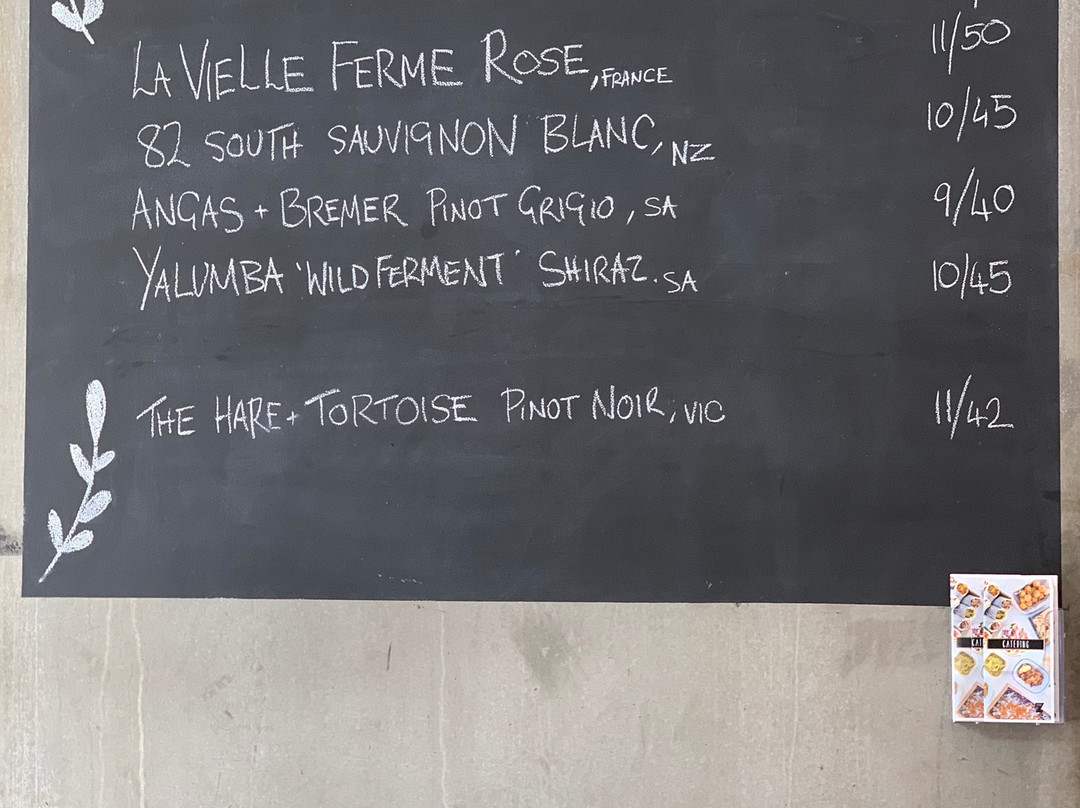 LA VIELLE FERME ROSE, FRANCE 11/50
82 SOUTH SAUVIGNON BLANC, NZ 10/45
ANGAS + BREMER PINOT GRIGIO, SA 9/40
YALUMBA 'WILD FERMENT' SHIRAZ. SA 10/45
THE HARE + TORTOISE PINOT NOIR, VIC 11/42
CAT CATERING